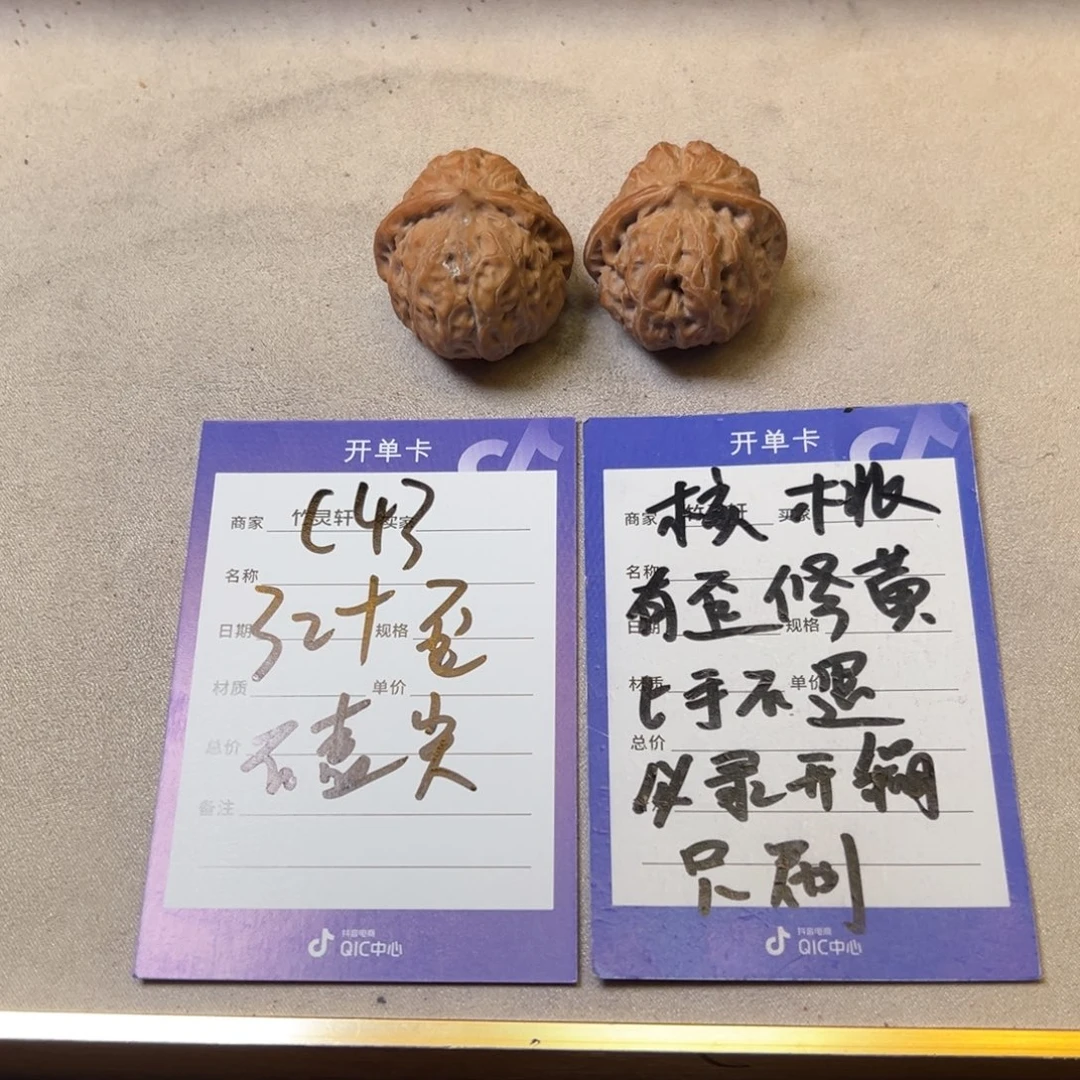 开单卡
C43
商家 竹灵轩 买家
名称
32十 歪
日期 规格
材质 单价
尖
总价
备注
抖音电商
QIC中心
开单卡
核桃
商家 竹灵轩 买家
名称
有歪修黄
日期 规格
上手不退
材质 单价
总价
必录开箱
只刷
抖音电商
QIC中心